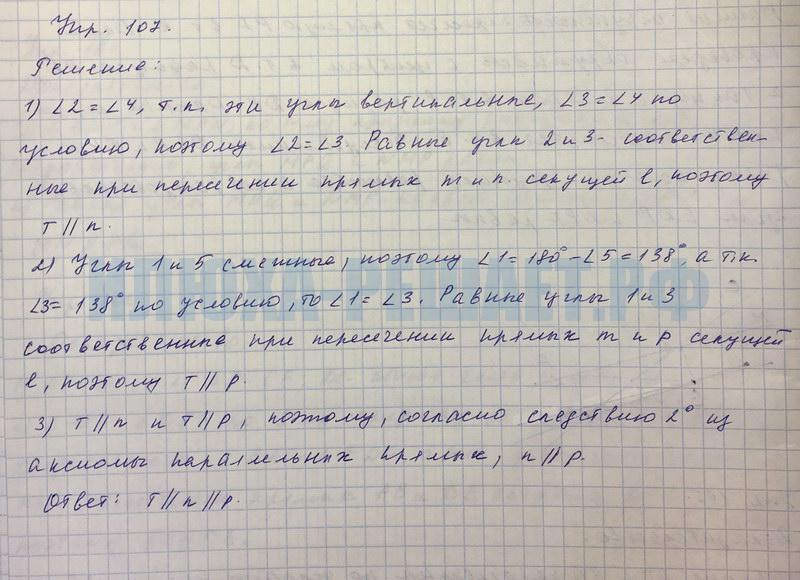 Упр. 107.
Решение:
1) ∠2 = ∠4, т.к. эти углы вертикальные, ∠3 = ∠4 по
условию, поэтому ∠2 = ∠3. Равные углы 2 и 3 - соответствен-
ные при пересечении прямых m и n секущей l, поэтому
m || n.
2) Углы 1 и 5 смежные, поэтому ∠1 = 180° - ∠5 = 138°, а т.к.
∠3 = 138° по условию, то ∠1 = ∠3. Равные углы 1 и 3
соответственные при пересечении прямых m и p секущей
l, поэтому m || p.
3) m || n и m || p, поэтому, согласно следствию 2° из
аксиомы параллельных прямых, n || p.
Ответ: m || n || p.